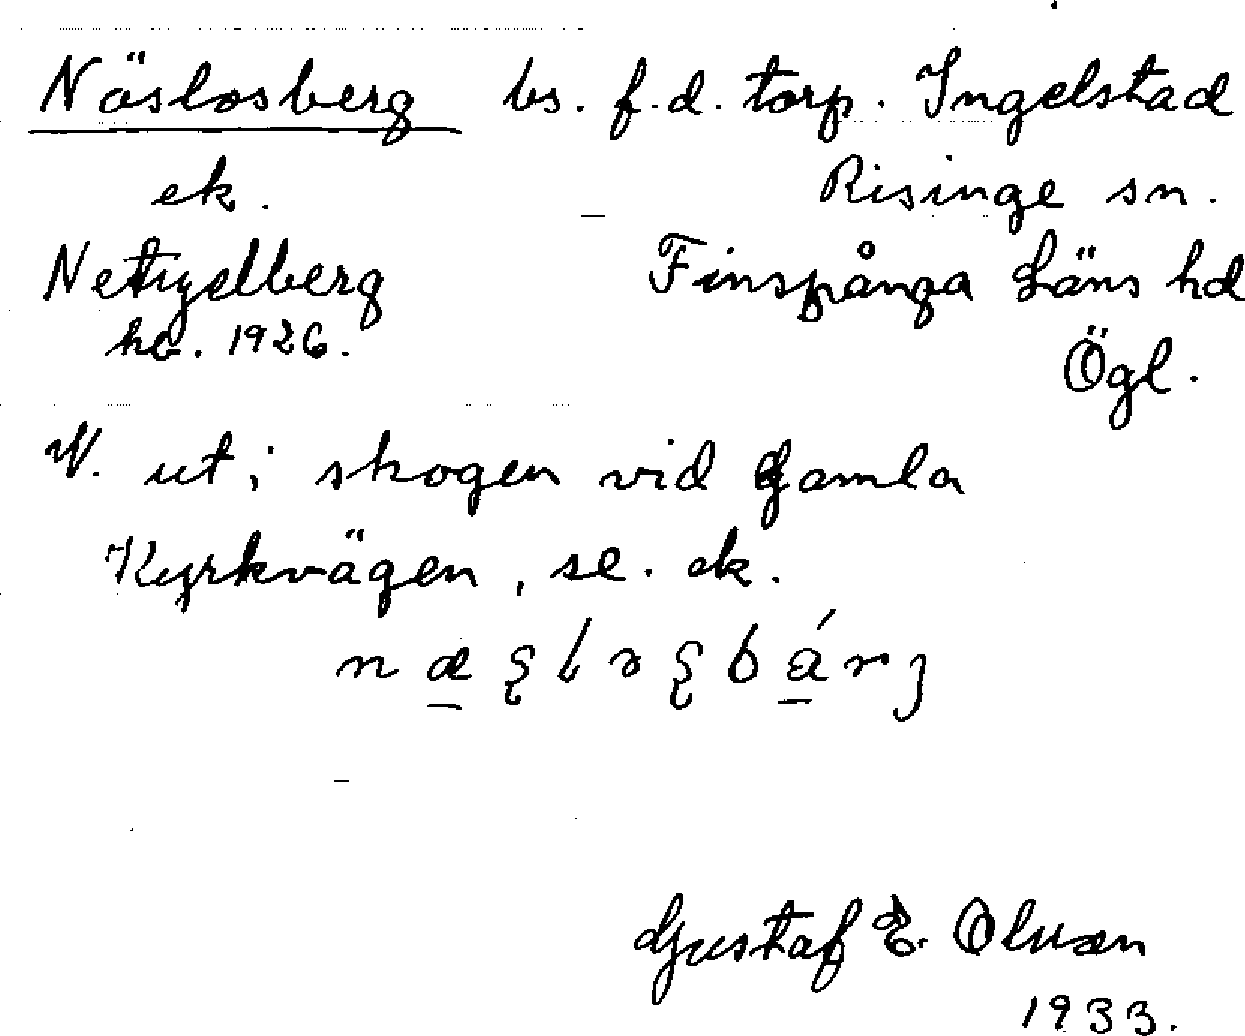 Näslosberg bs. f.d. torp. Ingelstad
ek. Risinge sn.
Netigelberg Finspånga Läns hd
hb. 1926. Ögl.
N. ut i skogen vid Gamla
Kyrkvägen, se. ek.
Gustaf E. Olsson
1933.